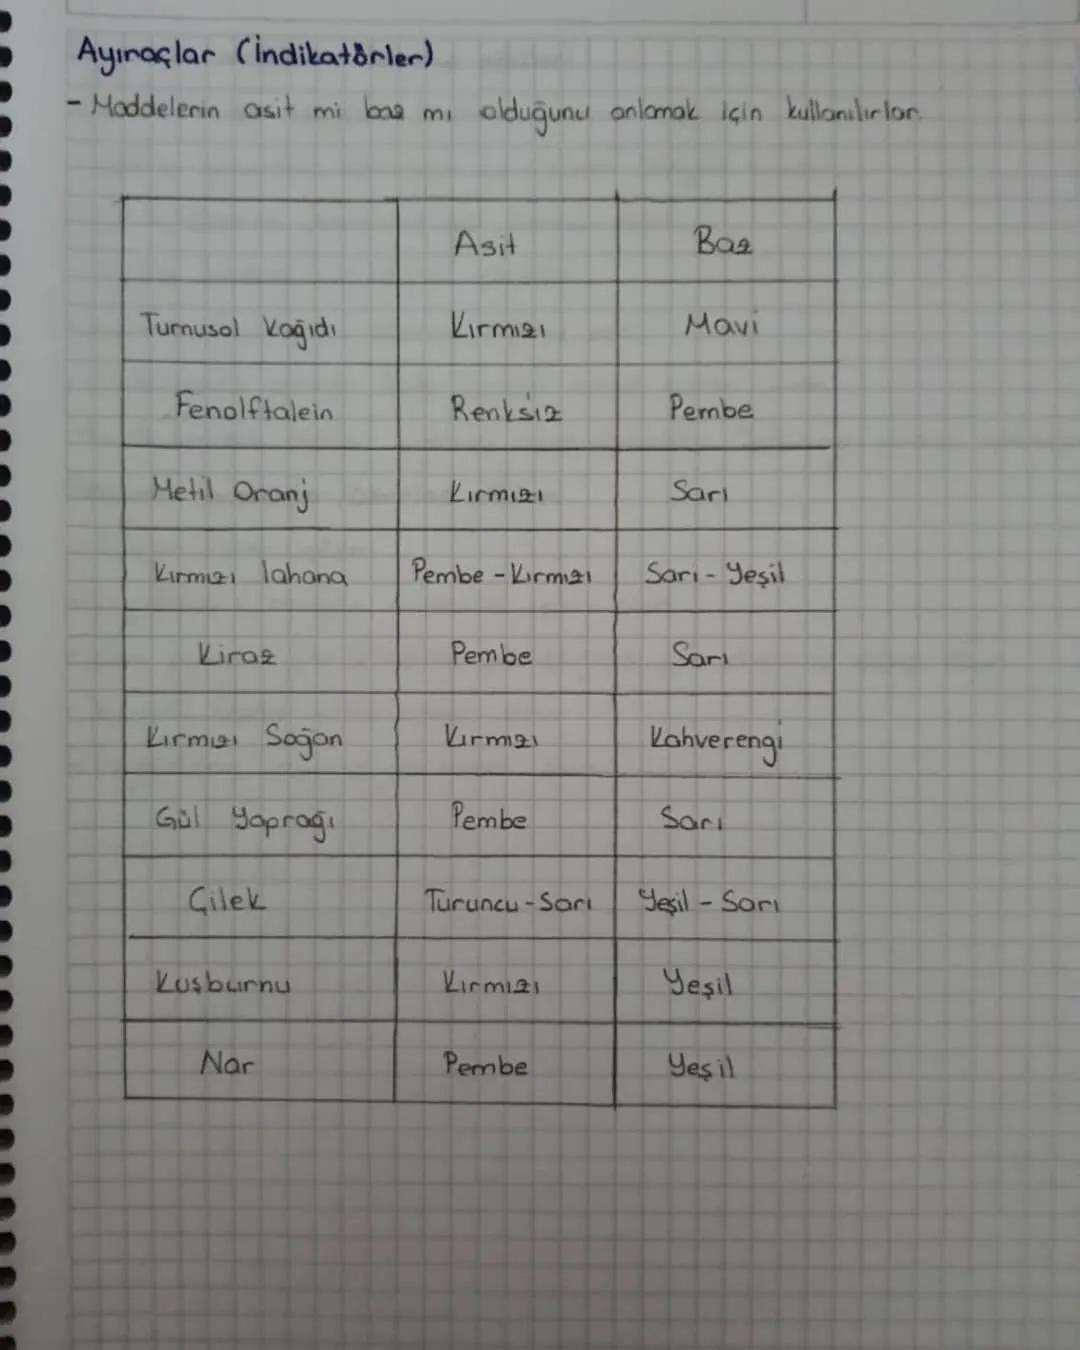 Ayıraçlar (İndikatörler)
- Maddelerin asit mi baz mı olduğunu anlamak için kullanılırlar.
Asit Baz
Turnusol Kağıdı Kırmızı Mavi
Fenolftalein Renksiz Pembe
Metil Oranj Kırmızı Sarı
Kırmızı lahana Pembe - Kırmızı Sarı - Yeşil
Kiraz Pembe Sarı
Kırmızı Soğan Kırmızı Kahverengi
Gül Yaprağı Pembe Sarı
Çilek Turuncu - Sarı Yeşil - Sarı
Kuşburnu Kırmızı Yeşil
Nar Pembe Yeşil